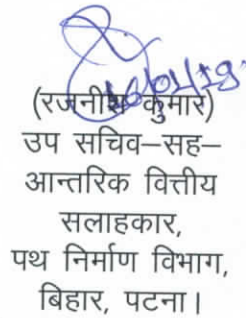 16/01/19
(रजनीश कुमार)
उप सचिव–सह–
आन्तरिक वित्तीय
सलाहकार,
पथ निर्माण विभाग,
बिहार, पटना।